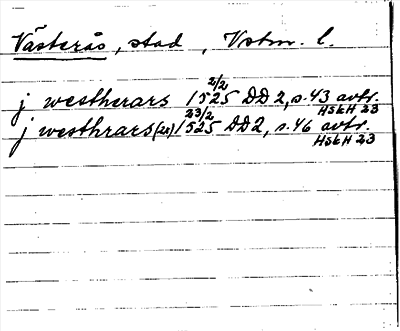 Västerås, stad, Vstm. l.
j westherars 2/2 1525 DD2, s. 43 avtr.
HSkH 23
j westhrars (2x) 23/2 1525 DD2, s. 46 avtr.
HSkH 23